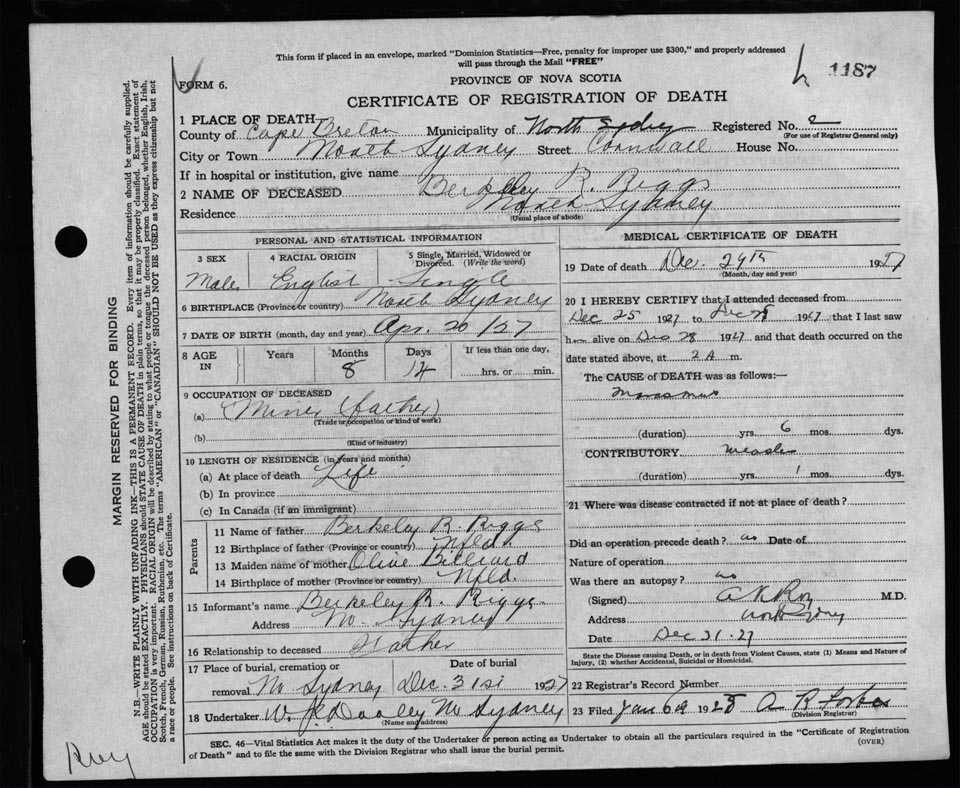 This form if placed in an envelope, marked "Dominion Statistics—Free, penalty for improper use $300," and properly addressed
will pass through the Mail "FREE"
FORM 6.
PROVINCE OF NOVA SCOTIA
1187
CERTIFICATE OF REGISTRATION OF DEATH
1 PLACE OF DEATH
County of Cape Breton Municipality of North Sydney Registered No. 2
(For use of Registrar General only)
City or Town North Sydney Street Cornwall House No.
If in hospital or institution, give name
2 NAME OF DECEASED Berkeley R. Riggs
Residence North Sydney
(Usual place of abode)
PERSONAL AND STATISTICAL INFORMATION
3 SEX 4 RACIAL ORIGIN 5 Single, Married, Widowed or Divorced. (Write the word)
Male English Single
6 BIRTHPLACE (Province or country) North Sydney
7 DATE OF BIRTH (month, day and year) Apr. 20/27
8 AGE IN Years Months Days If less than one day,
8 14 hrs. or min.
9 OCCUPATION OF DECEASED
(a) Miner (father)
(Trade occupation or kind of work)
(b)
(Kind of industry)
10 LENGTH OF RESIDENCE (in years and months)
(a) At place of death Life
(b) In province
(c) In Canada (if an immigrant)
Parents
11 Name of father Berkeley R. Riggs
12 Birthplace of father (Province or country) Nfld.
13 Maiden name of mother Olive Billiard
14 Birthplace of mother (Province or country) Nfld.
15 Informant's name Berkeley R. Riggs
Address No. Sydney
16 Relationship to deceased Father
17 Place of burial, cremation or removal Date of burial
No Sydney Dec. 31st 1927
18 Undertaker W. J. Dooley No Sydney
(Name and address)
MEDICAL CERTIFICATE OF DEATH
19 Date of death Dec. 29th 1927
(Month, day and year)
20 I HEREBY CERTIFY that I attended deceased from
Dec 25 1927 to Dec 28 1927 that I last saw
him alive on Dec 28 1927 and that death occurred on the
date stated above, at 2 A m.
The CAUSE OF DEATH was as follows:—
Marasmus
(duration) yrs. 6 mos. dys.
CONTRIBUTORY Measles
(duration) yrs. 1 mos. dys.
21 Where was disease contracted if not at place of death?
Did an operation precede death? no Date of
Nature of operation
Was there an autopsy? no
(Signed) M.D.
Address North Sydney
Date Dec 31.27
State the Disease causing Death, or in death from Violent Causes, state (1) Means and Nature of
Injury, (2) whether Accidental, Suicidal or Homicidal.
22 Registrar's Record Number
23 Filed Jan 6th 1928 A R Forbes
(Division Registrar)
SEC. 46—Vital Statistics Act makes it the duty of the Undertaker or person acting as Undertaker to obtain all the particulars required in the "Certificate of Registration
of Death" and to file the same with the Division Registrar who shall issue the burial permit.
(OVER)
MARGIN RESERVED FOR BINDING
N.B.—WRITE PLAINLY WITH UNFADING INK—THIS IS A PERMANENT RECORD. Every item of information should be carefully supplied.
AGE should be stated EXACTLY. PHYSICIANS should STATE CAUSE OF DEATH in plain terms, so that it may be properly classified. Exact statement of
OCCUPATION is very important. RACIAL ORIGIN will be described by stating to what people or tongue the deceased person belonged, whether English, Irish,
Scotch, French, German, Russian, Ruthenian, etc. The terms "AMERICAN" or "CANADIAN" SHOULD NOT BE USED as they express citizenship but not
a race or people. See instructions on back of Certificate.